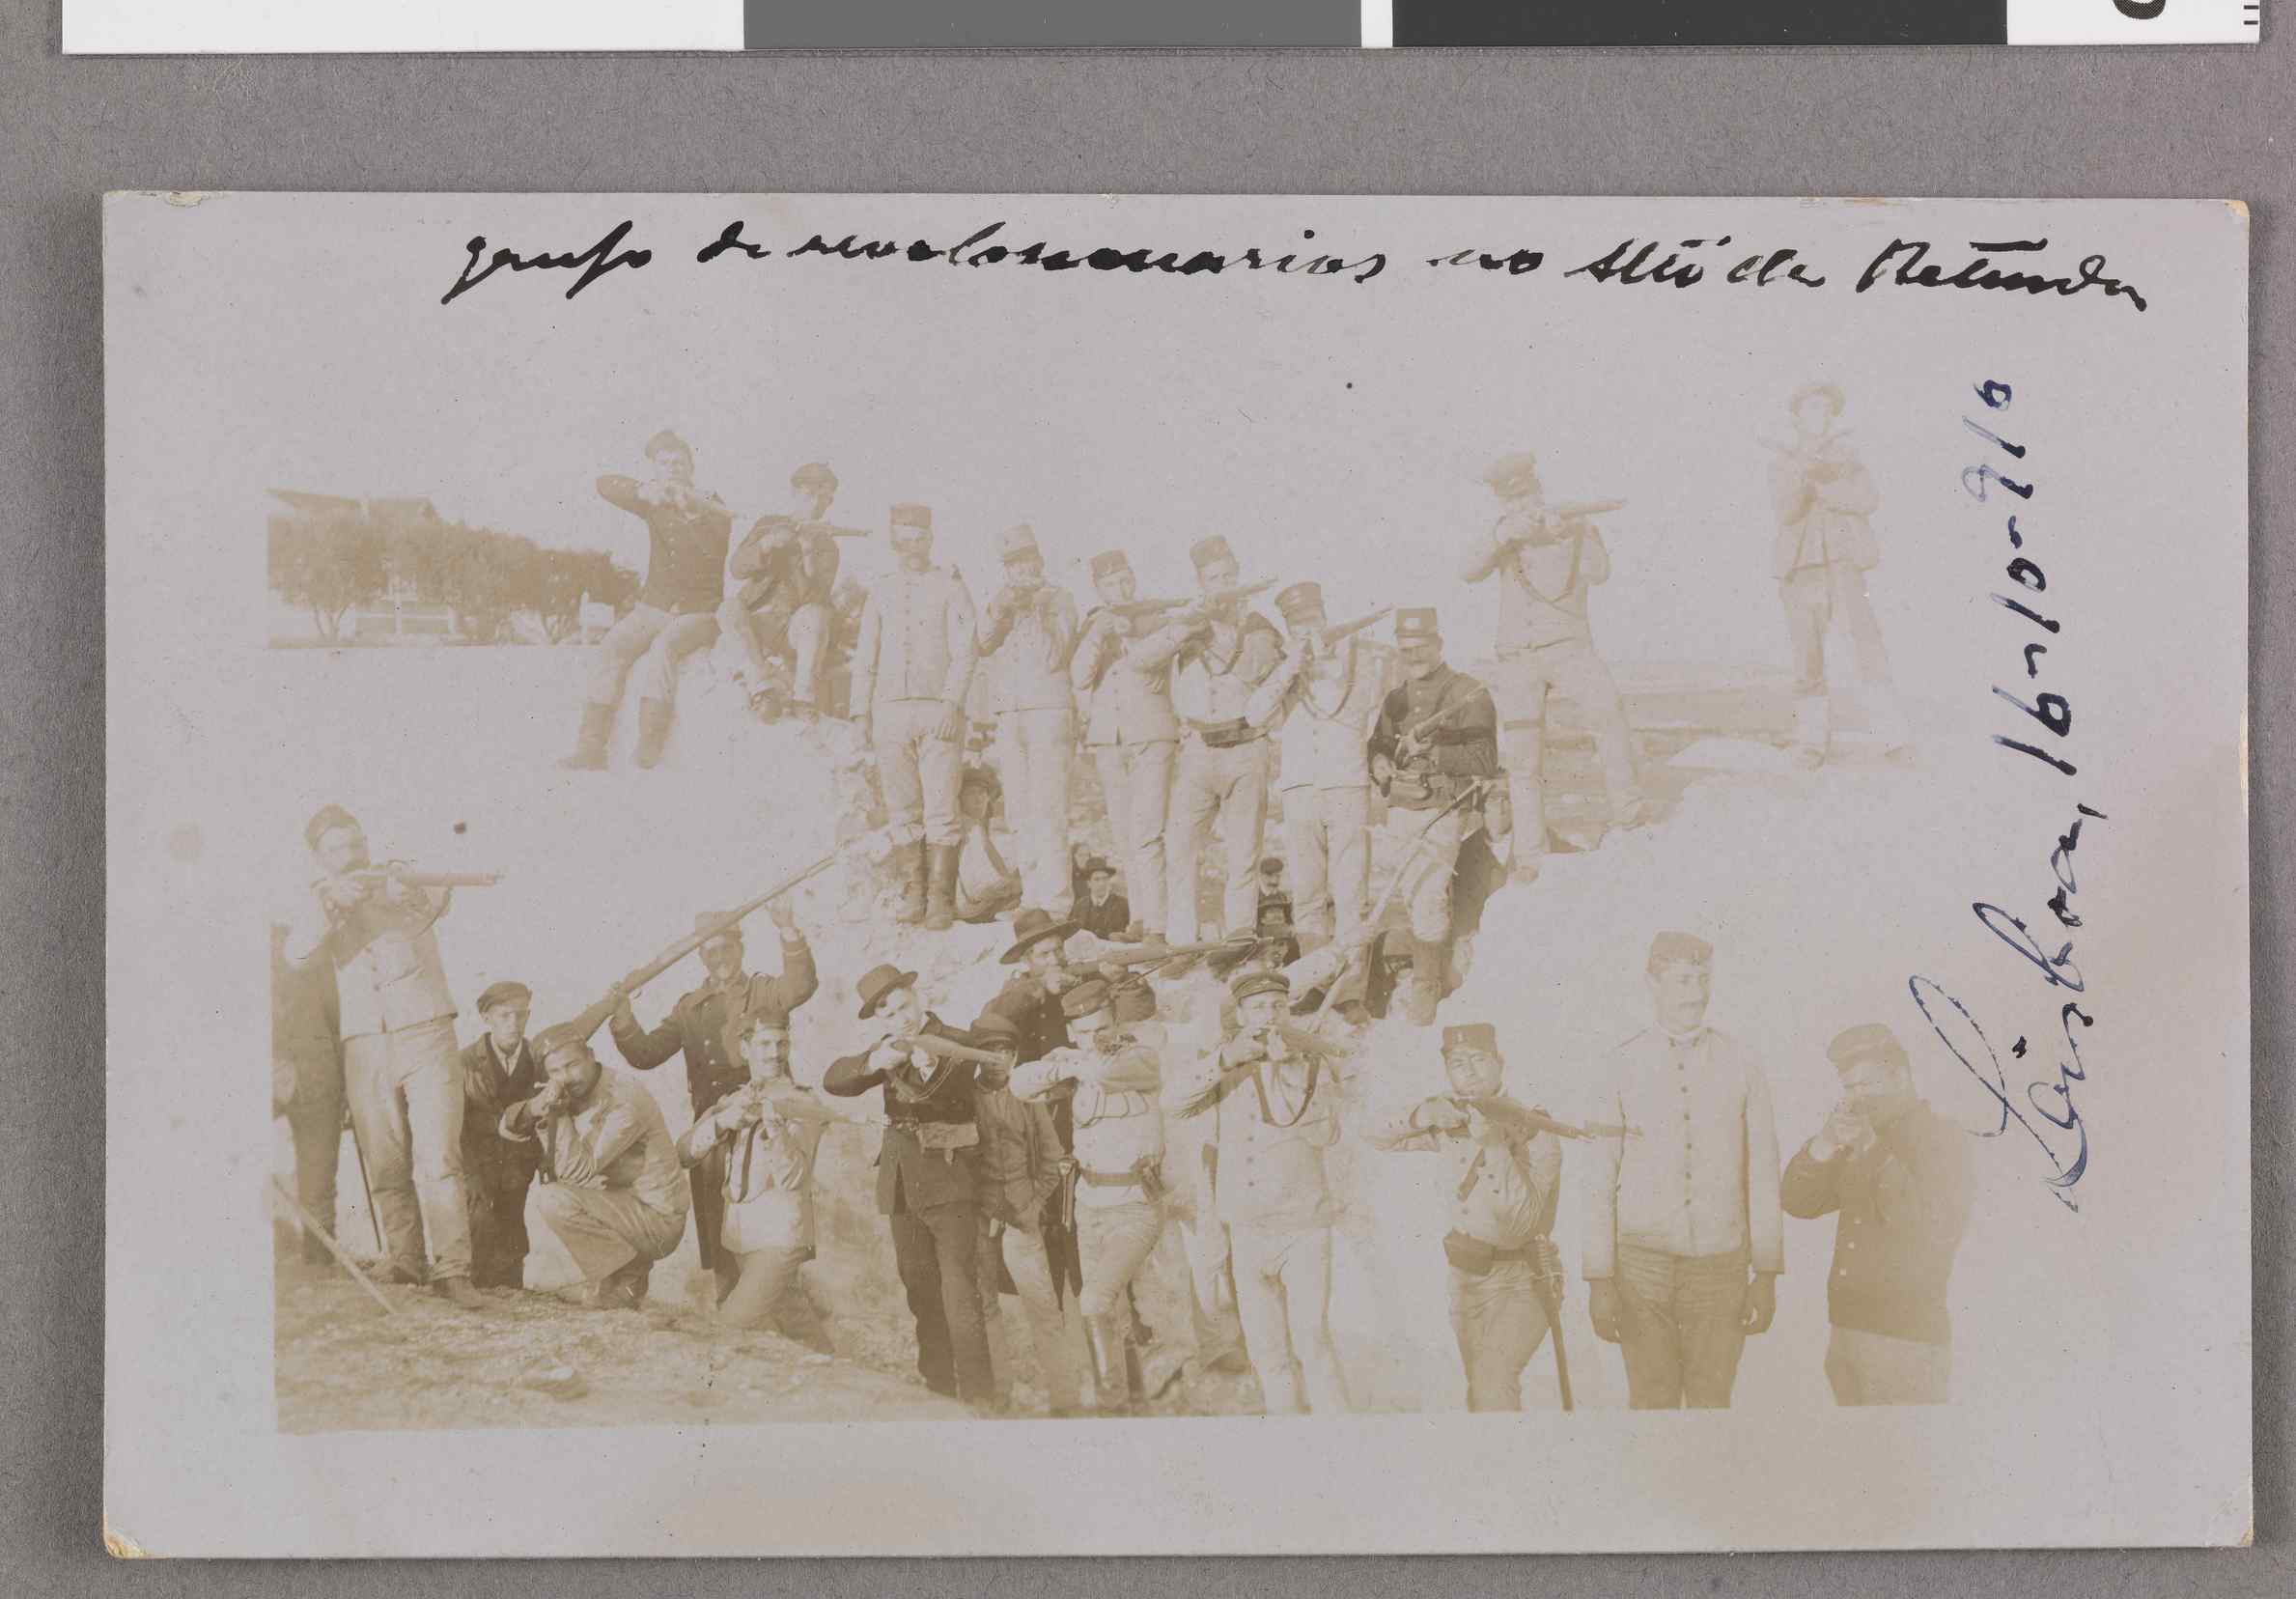 grupo de revolocionarios no Alto da Retunda
Lisboa, 16-10-910